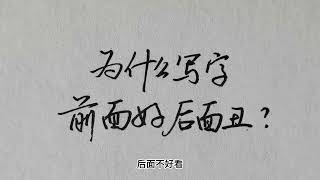 为什么写字
前面好后面丑？
后面不好看